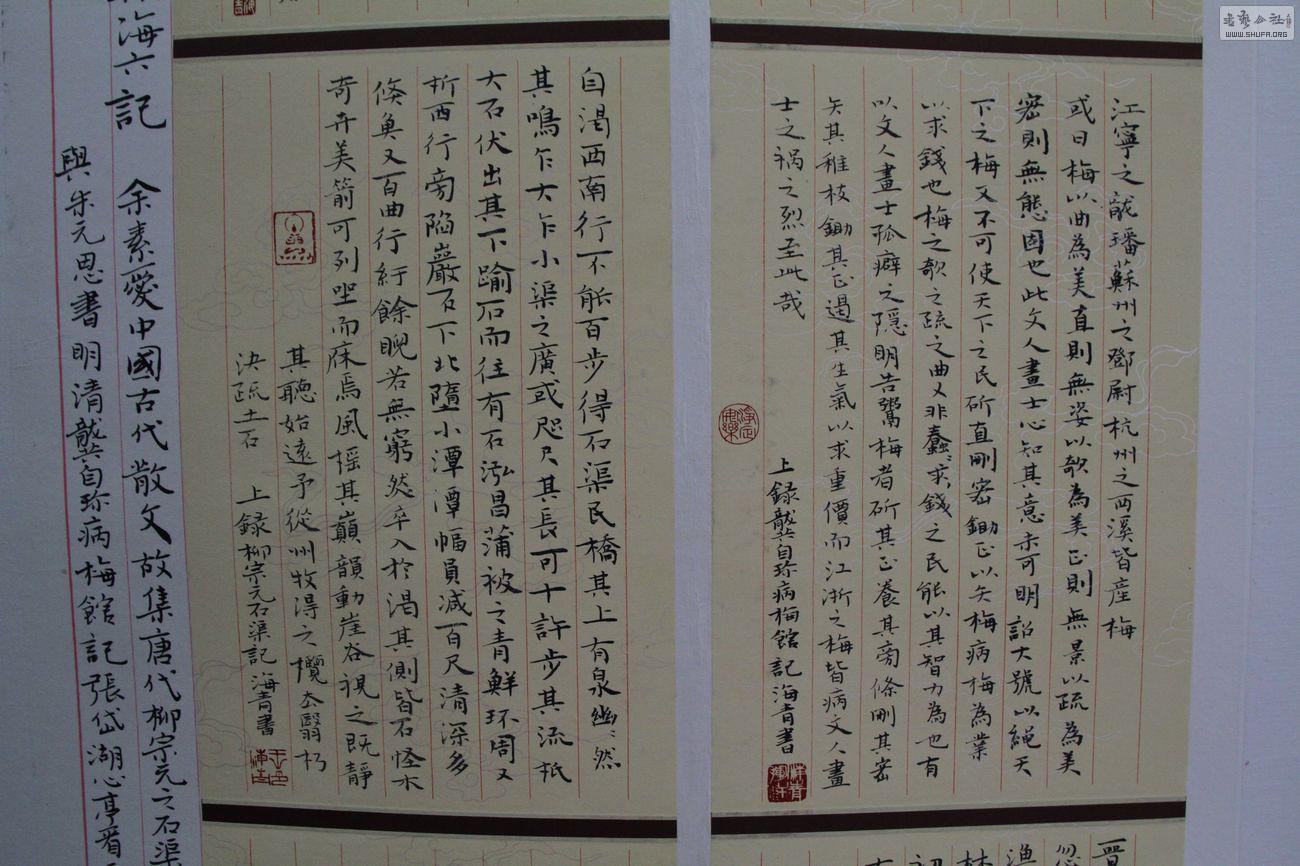 書藝公社
WWW.SHUFA.ORG
江寧之龍蟠蘇州之鄧尉杭州之西溪皆産梅
或曰梅以曲為美直則無姿以欹為美正則無景以疏為美
密則無態固也此文人畫士心知其意未可明詔大號以繩天
下之梅又不可使天下之民斫直刪密鋤正以夭梅病梅為業
以求錢也梅之欹之疏之曲又非蠢蠢求錢之民能以其智力為也有
以文人畫士孤癖之隱明告鬻梅者斫其正養其旁條刪其密
夭其稚枝鋤其正遏其生氣以求重價而江浙之梅皆病文人畫
士之禍之烈至此哉
上録龔自珍病梅館記海青書
自渴西南行不能百步得石渠民橋其上有泉幽幽然
其鳴乍大乍小渠之廣或咫尺其長可十許步其流抵
大石伏出其下踰石而往有石泓昌蒲被之青鮮环周又
折西行旁陷巖石下北墮小潭潭幅員减百尺清深多
倏魚又百曲行紆餘睨若無窮然卒入於渴其側皆石怪木
奇卉美箭可列坐而庥焉風摇其巔韻動崖谷視之既靜
其聽始遠予從州牧得之攬去翳朽
決疏土石
上録柳宗元石渠記海青書
海六記
余素愛中國古代散文故集唐代柳宗元之石渠
與朱元思書明清龔自珍病梅館記張岱湖心亭看
晋
忽
漁
林